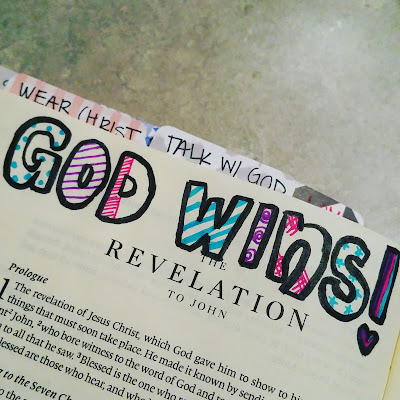 WEAR CHRIST
TALK W/ GOD
GOD WINS!
THE
REVELATION
TO JOHN
Prologue
1 The revelation of Jesus Christ, which God gave him to show to his
things that must soon take place. He made it known by sending
John, ²who bore witness to the word of God and to
to all that he saw. ³Blessed is the one who
blessed are those who hear, and who
to the Seven